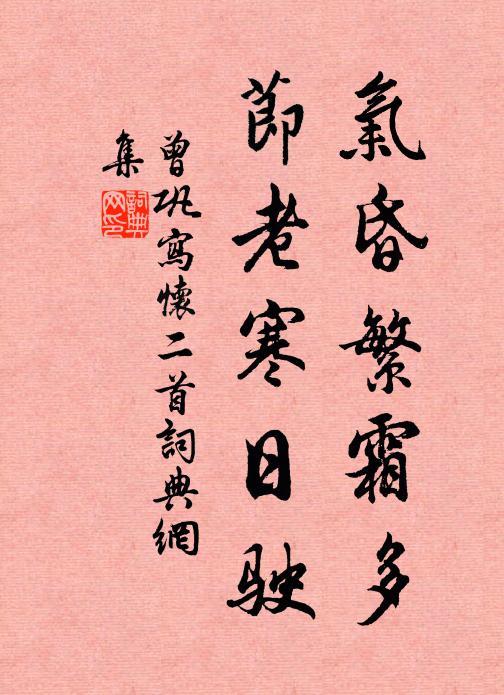 氣昏繁霜多
節老寒日駛
曾巩寫懷二首詞典網
集
詞典
网印